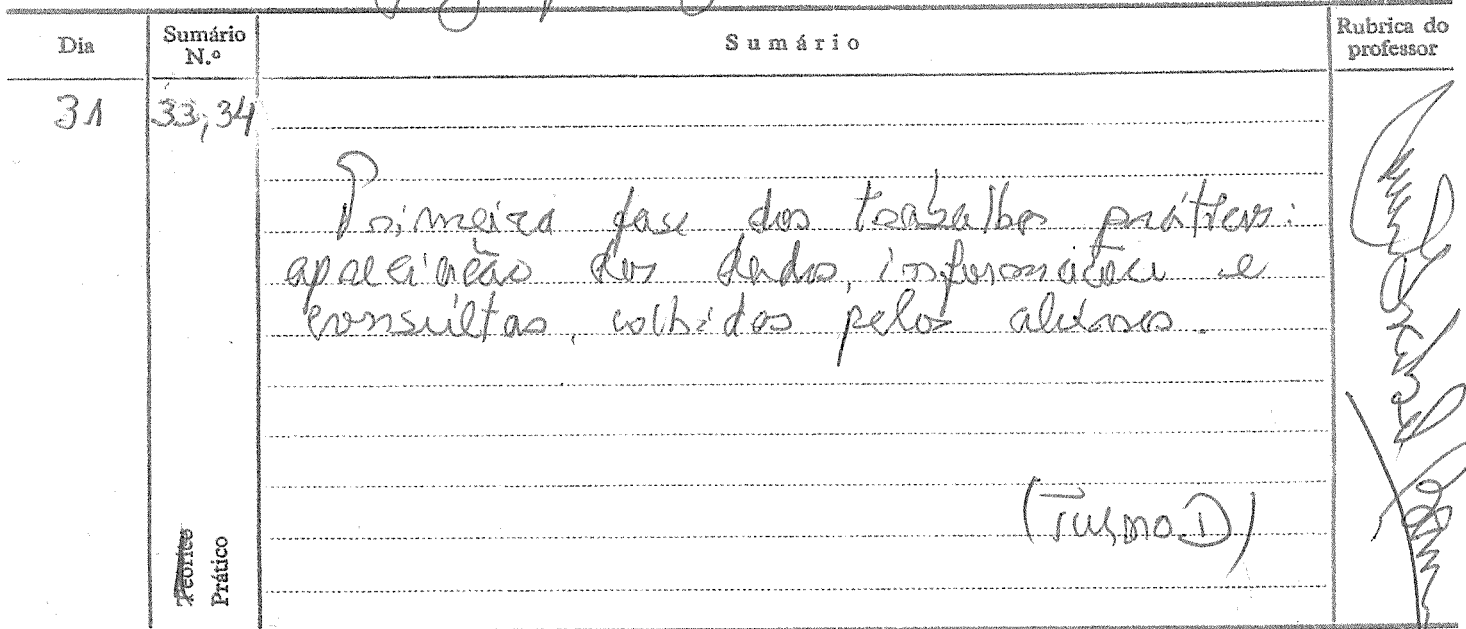 Dia
Sumário N.º
Sumário
Rubrica do professor
31
33, 34
Primeira fase dos trabalhos práticos:
apreciação dos dados, informações e
consultas, colhidos pelos alunos.
(Turma D)
Teórico
Prático